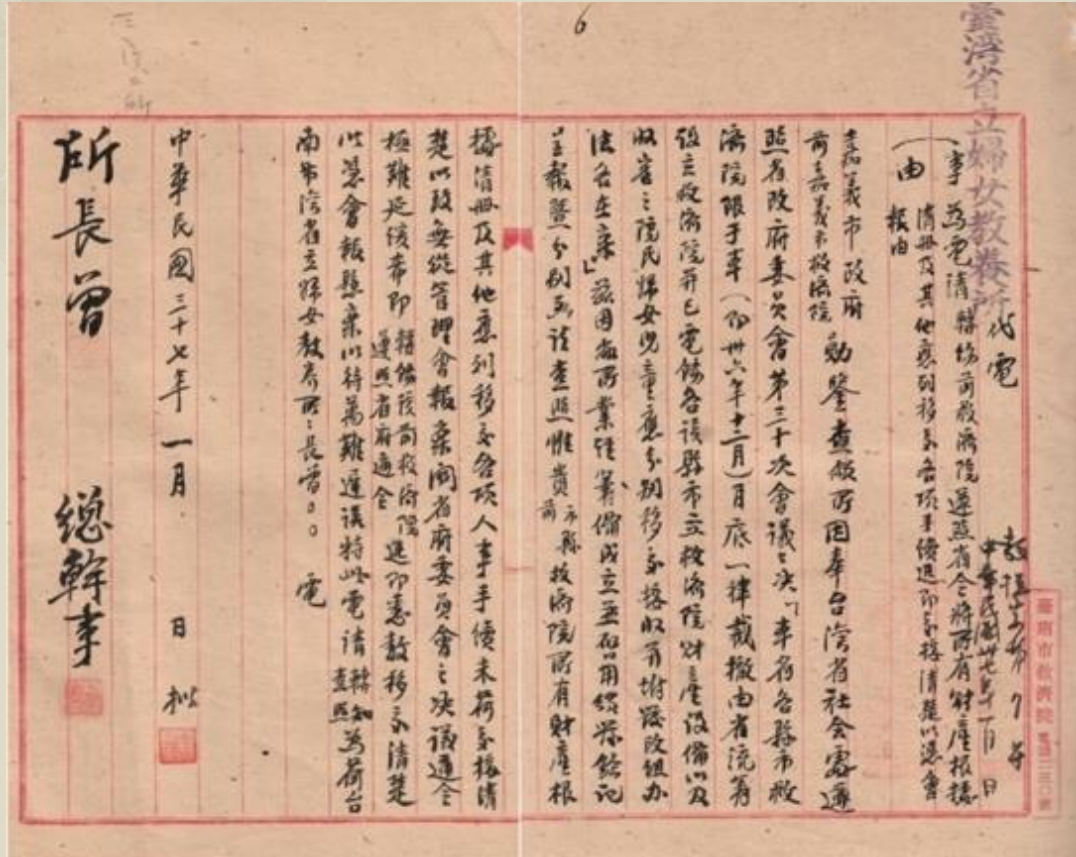 6
臺灣省立婦女教養所
代電
中華民國卅七年一月 日
事由
為電請縣協前救濟院遵照省令將所有財產根據
清冊及其他應列移交各項手續迅即交接清楚以憑會
報由
嘉義市政府
前嘉義市救濟院
勛鑒查敝所因奉台灣省社會處遵
照省政府委員會第三十次會議之決「本省各縣市救
濟院限于本(卅六年十二月)月底一律裁撤由省統籌
設立救濟院并已電飭各該縣市立救濟院財產設備以及
收容之院民婦女兒童應分別移交接收
「法各在案」茲因敝所業經籌備成立並啟用鈐記
呈報暨分別函請查照惟貴市縣前救濟院所有財產根
據清冊及其他應列移交各項人事手續未荷交接清
楚以致無從管理會報案關省府委員會之決議通令
極難延緩希即轉飭該前救濟院遵照省府通令迅即悉數移交清楚
以憑會報懸案以待萬難遲誤特此電請轉知查照為荷台
南市台灣省立婦女教養所所長曾○○ 電
中華民國三十七年 一月 日 擬
所長曾 總幹事
臺南市救濟院